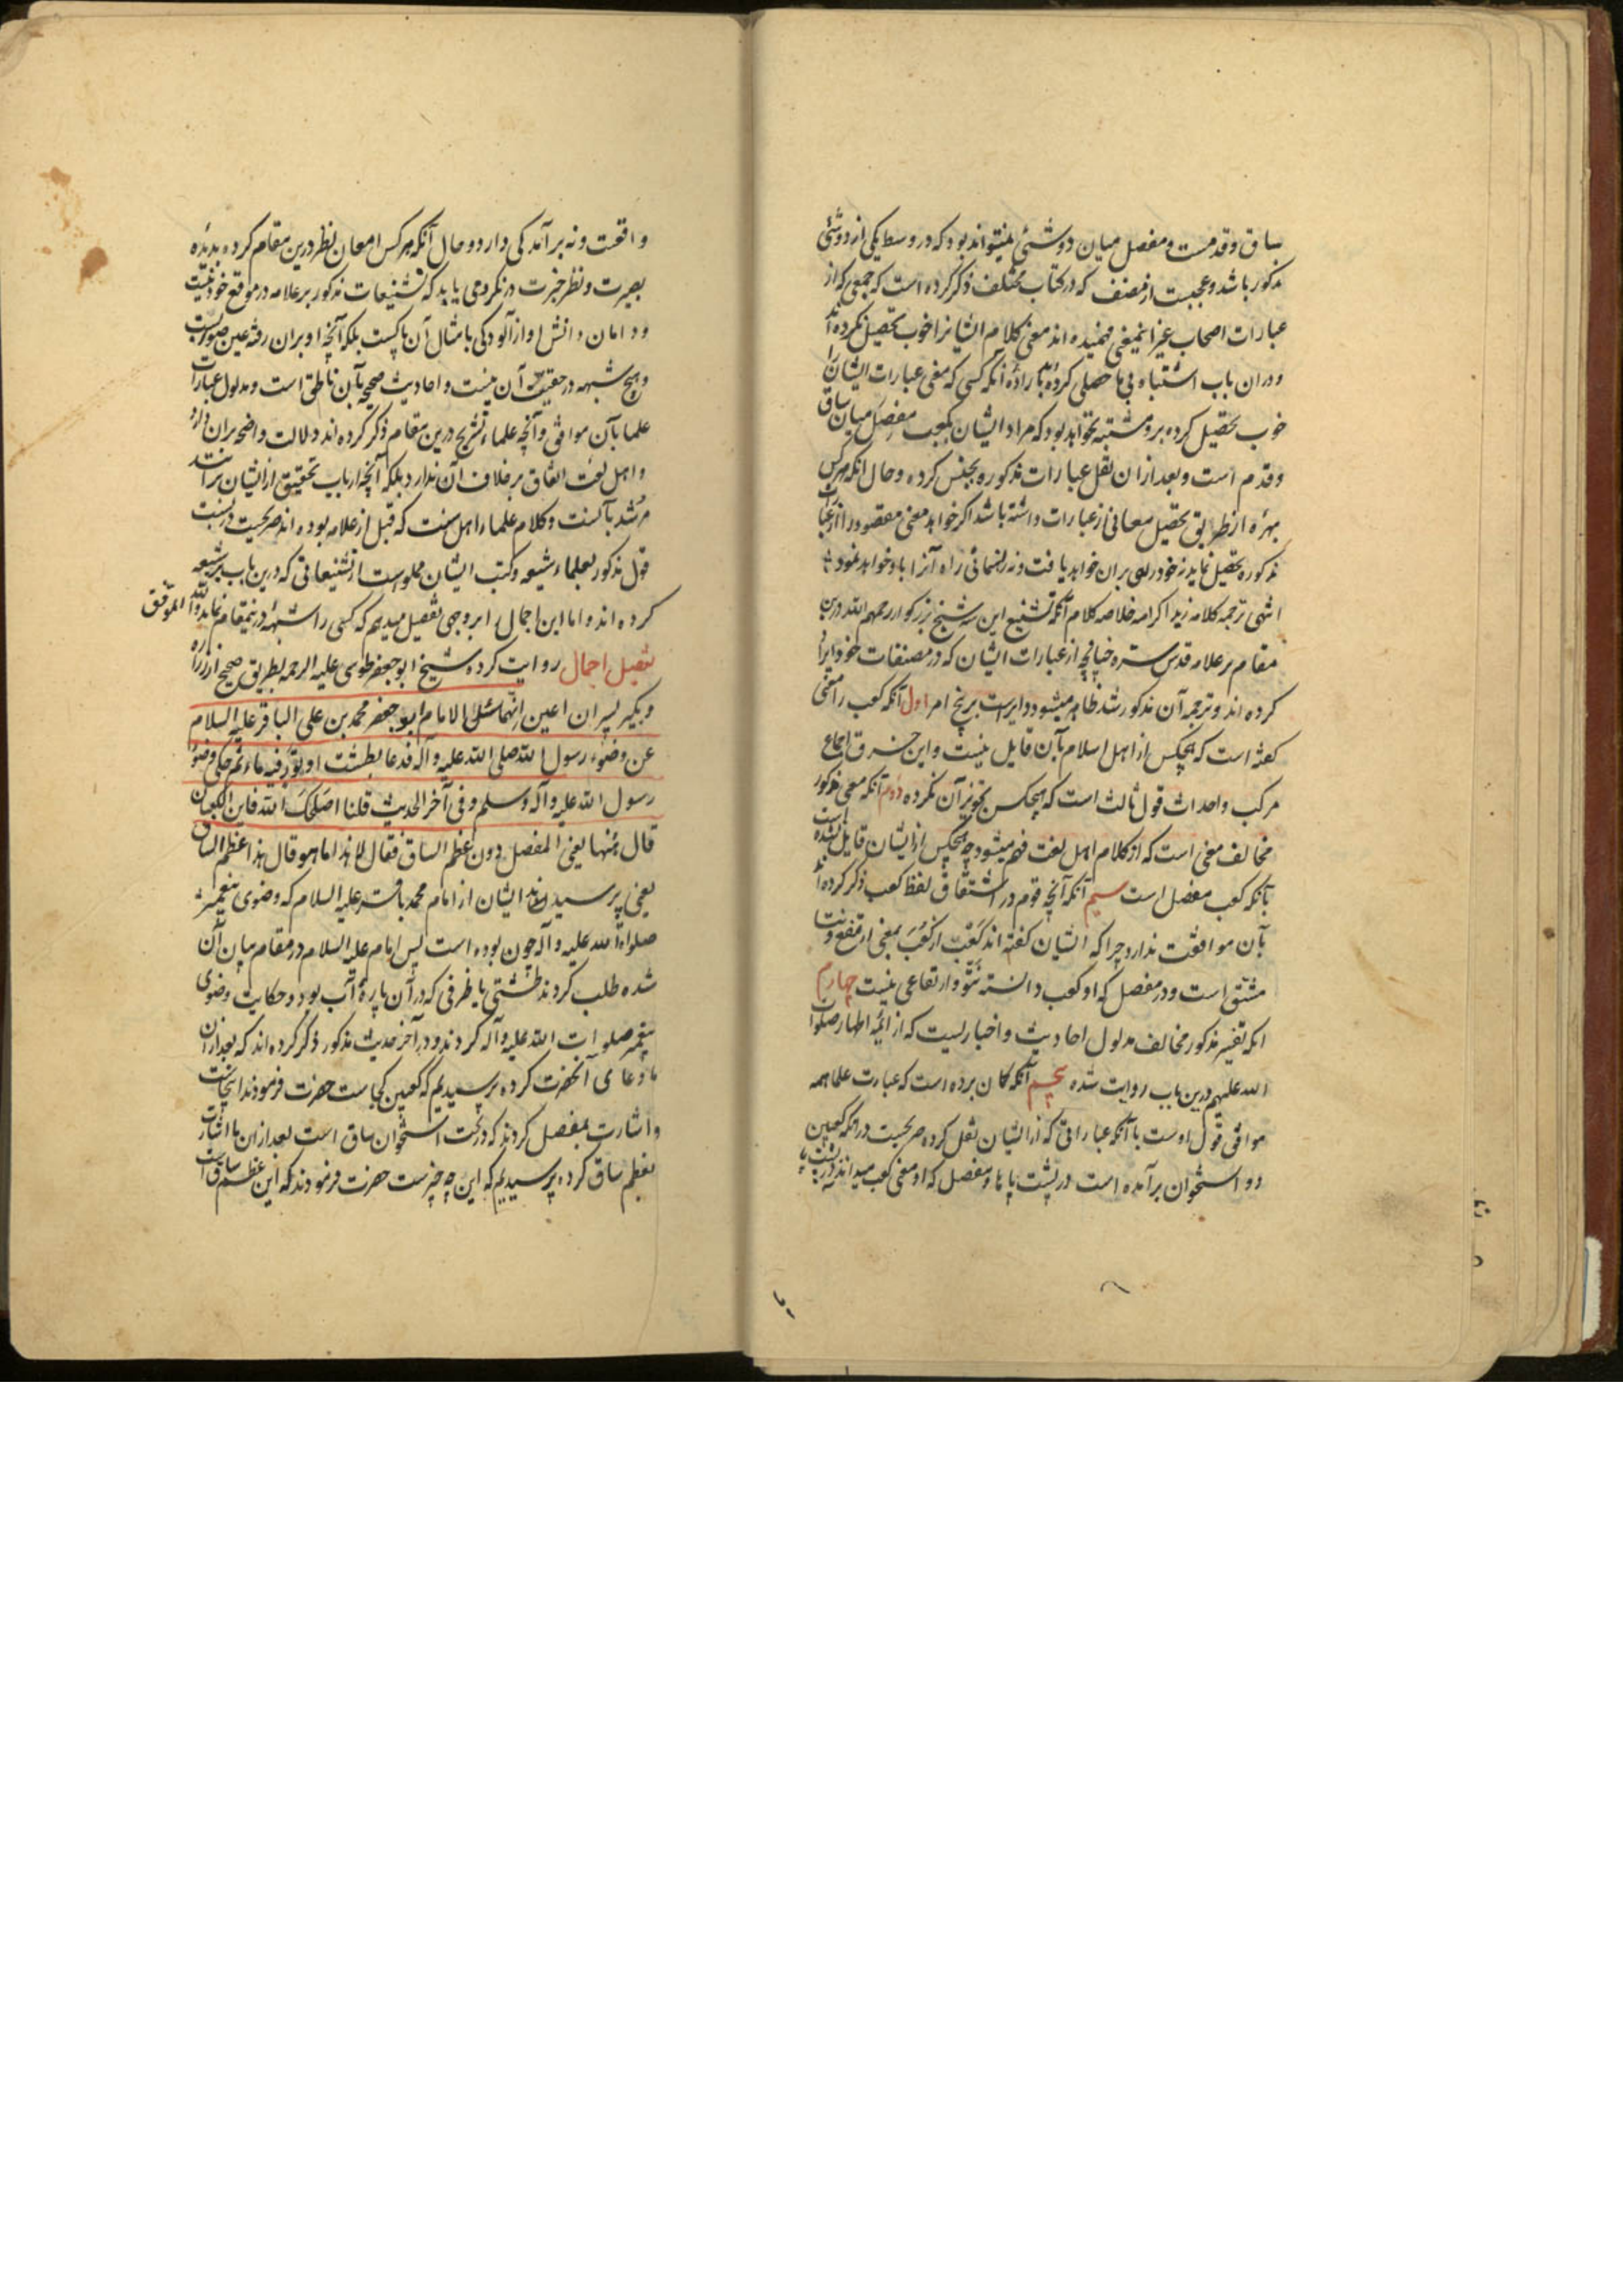 ساق و قدمست و مفصل میان دو شئی نمیتواند بود که در وسط یکی از دو شئی
مذکور باشد و عجبست از مصنف که در کتاب مختلف ذکر کرده است که جمعی که از
عبارات اصحاب غیر اینمعنی فهمیده اند معنی کلام ایشانرا خوب تحصیل نکرده اند
و در ان باب اشتباه بی حاصلی کرده اند با راده آنکه کسی که معنی عبارات ایشان را
خوب تحصیل کرده برو مشتبه نخواهد بود که مراد ایشان بکعب مفصل میان ساق
و قدم است و بعد از ان نقل عبارات مذکوره بجنس کرده و حال انکه هر کس
بهره از طریق تحصیل معانی از عبارات داشته باشد اکر خواهد معنی مقصود را از عبارات
مذکوره تحصیل نماید نه خود راهی بران خواهد یافت و نه رهنمائی راه آنرا باو خواهد نمود
انتهی ترجمه کلامه زید اکرامه خلاصه کلام آنکه تشنیع این سه شیخ بزرکوار رحمهم الله درین
مقام بر علامه قدس سره چنانچه از عبارات ایشان که در مصنفات خود ایراد
کرده اند و ترجمه آن مذکور شد ظاهر میشود دایرست بر پنج امر اول آنکه کعب را معنی
کفته است که هیچکس از اهل اسلام بآن قایل نیست و این خرق اجماع
مرکب و احداث قول ثالث است که هیچکس تجویز آن نکرده دوم آنکه معنی مذکور
مخالف معنی است که از کلام اهل لغت فهم میشود چه هیچکس از ایشان قایل نشده است
بآنکه کعب مفصل است سیم آنکه آنچه قوم در اشتقاق لفظ کعب ذکر کرده اند
بآن موافقت ندارد چرا که ایشان کفته اند کعب از کعب بمعنی ارتفع و نتا
مشتق است و در مفصل که او کعب دانسته نتو و ارتفاعی نیست چهارم
انکه تفسیر مذکور مخالف مدلول احادیث و اخباریست که از ائمه اطهار صلوات
الله علیهم درین باب روایت شده پنجم آنکه کمان برده است که عبارت علما همه
موافق قول اوست با آنکه عباراتی که از ایشان نقل کرده صریحست در انکه کعبین
دو استخوان برآمده است در پشت پا ها و مفصل که او معنی کعب میداند نه در پشت پا
واقعست و نه برآمدکی دارد و حال آنکه هر کس امعان نظر درین مقام کرده بدیده
بصیرت و نظر خبرت در نکرد می یابد که تشنیعات مذکور بر علامه در موقع خود نیست
و دامان دانش او از آلودکی بامثال آن پاکست بلکه آنچه او بران رفته عین صوابست
و هیچ شبهه در حقیت آن نیست و احادیث صحیحه بآن ناطق است و مدلول عبارات
علما بآن موافق و آنچه علماء تشریح درین مقام ذکر کرده اند دلالت واضحه بران دارد
و اهل لغت اتفاق بر خلاف آن ندارند بلکه آنچه ارباب تحقیق از ایشان برانند
مرشد بآنست و کلام علماء اهل سنت که قبل از علامه بوده اند صریحست در نسبت
قول مذکور بعلماء شیعه و کتب ایشان مملوست از تشنیعاتی که درین باب بر شیعه
کرده اند و اما این اجمال را بر وجهی تفصیل میدهیم که کسی را شبهه درینمقام نماند و الله الموفق
تفصیل اجمال روایت کرده شیخ ابو جعفر طوسی علیه الرحمه بطریق صحیح از زراره
و بکیر پسران اعین انهما سئلا الامام ابو جعفر محمد بن علی الباقر علیه السلام
عن وضوء رسول الله صلی الله علیه و آله فدعا بطشت او تور فیه ماء ثم حکی وضوء
رسول الله علیه و آله و سلم و فی آخر الحدیث قلنا اصلحک الله فاین الکعبان
قال ههنا یعنی المفصل دون عظم الساق فقالا هذا ما هو قال هذا عظم الساق
یعنی پرسیدند ایشان از امام محمد باقر علیه السلام که وضوی پیغمبر
صلواة الله علیه و آله چون بوده است پس امام علیه السلام در مقام بیان آن
شده طلب کردند طشتی یا ظرفی که در آن پاره آب بود و حکایت وضوی
پیغمبر صلوات الله علیه و آله کردند و در آخر حدیث مذکور ذکر کرده اند که بعد از ان
ما دعای آنحضرت کرده پرسیدیم که کعبین کجاست حضرت فرمودند اینجاست
و اشارت بمفصل کردند که در تحت استخوان ساق است بعد از ان ما اشارت
بعظم ساق کرده پرسیدیم که این چه چیزست حضرت فرمودند که این عظم ساق است